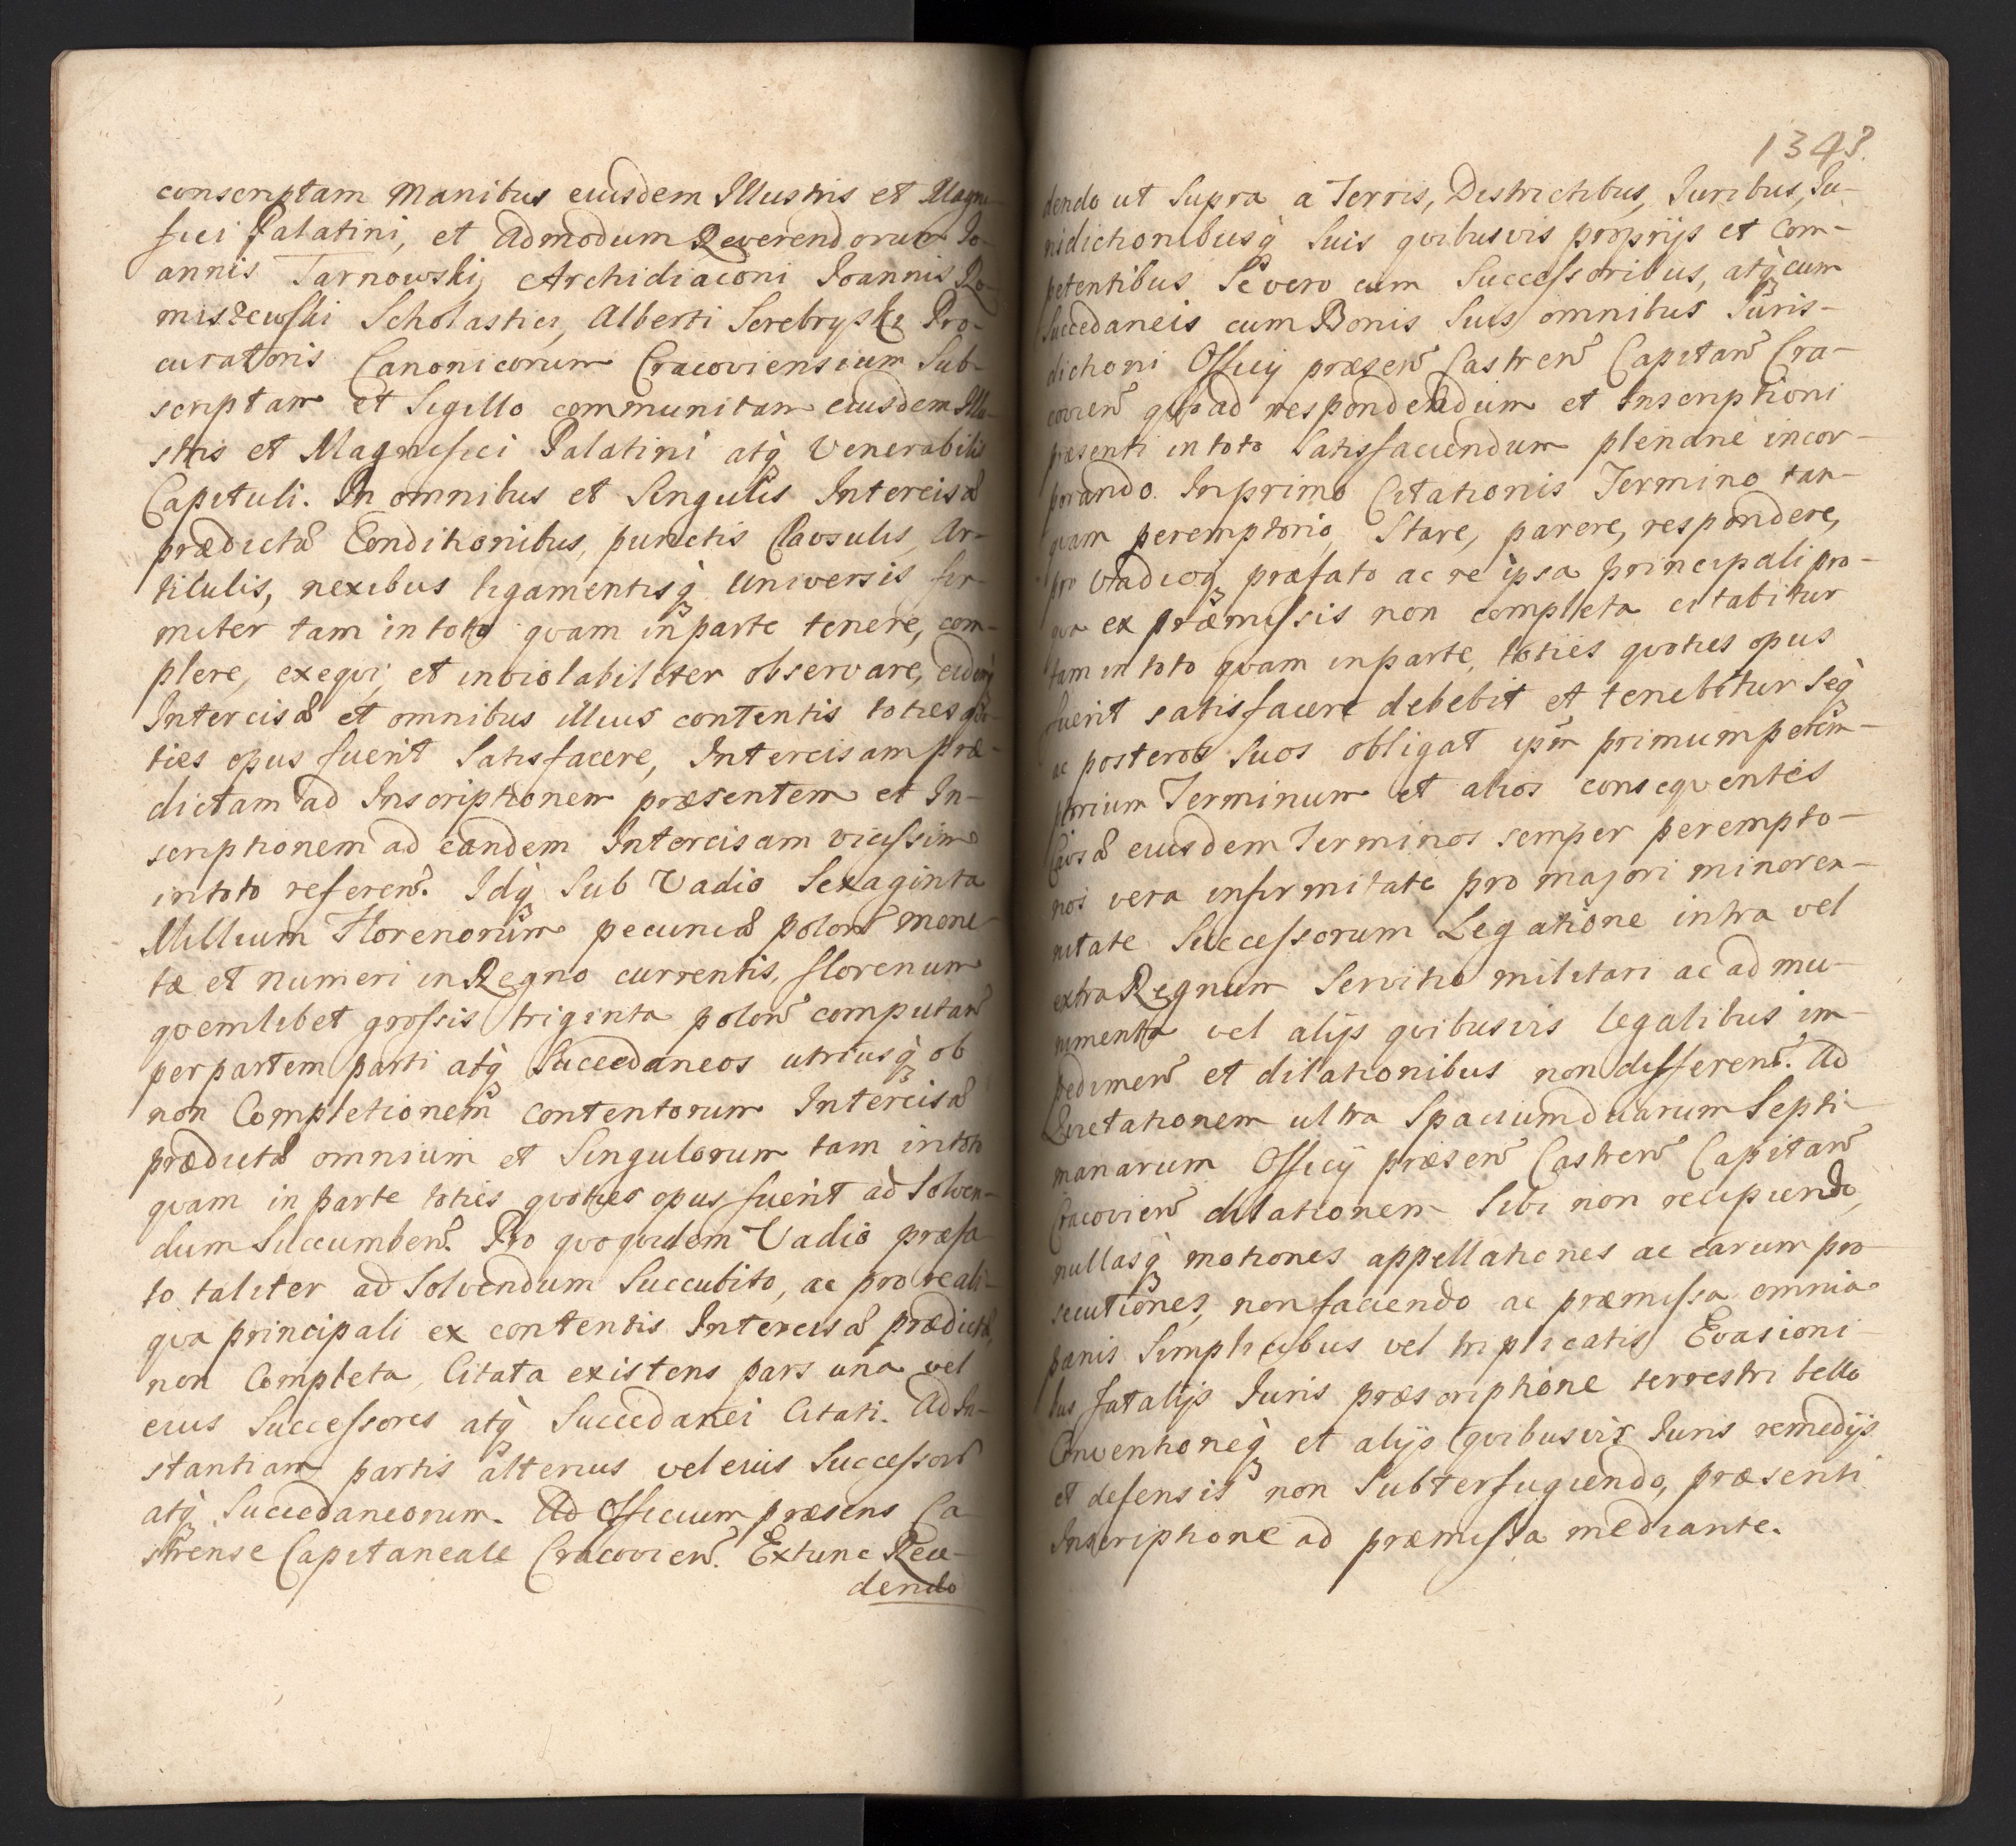 conscriptam manibus eiusdem Illustris et Magni-
fici Palatini, et Admodum Reverendorum Jo-
annis Tarnowski, Archidiaconi Joannis Ro-
miszewski Scholastici, Alberti Serebryski Pro-
curatoris Canonicorum Cracoviensium Sub-
scriptam et Sigillo communitam eiusdem Illu-
stris et Magnifici Palatini atq̀ Venerabilis
Capituli. In omnibus et Singulis Intercisæ
prædictæ Conditionibus, punctis Clausulis, Ar-
titulis, nexibus ligamentisq̀ universis fir-
miter tam in toto qvam in parte tenere, com-
plere, exeqvi, et inviolabiliter observare, eidemq̀
Intercisæ et omnibus illius contentis toties qvo-
ties opus fuerit Satisfacere, Intercisam præ-
dictam ad Inscriptionem præsentem et In-
scriptionem ad eandem Intercisam vicissim
in toto referen̄. Idq̀ Sub Vadio Sexaginta
Millium Florenorum pecuniæ polon̄ mone-
tæ et numeri in Regno currentis, florenum
qvemlibet grossis triginta polon̄ computan̄
per partem parti atq̀ Succedaneos utriusq̀ ob
non Completionem contentorum Intercisæ
prædictæ omnium et Singulorum tam in toto
qvam in parte toties qvoties opus fuerit ad Solven-
dum Succumben̄. Pro qvoqvidem Vadio præfa-
to taliter ad Solvendum Succubito, ac pro re ali-
qva principali ex contentis Intercisæ prædictæ,
non Completa, Citata existens pars una vel
eius Successores atq̀ Succedanei Citati. Ad In-
stantiam partis alterius vel eius Successor̄
atq̀ Succedaneorum. Ad Officium præsens Ca-
strense Capitaneale Cracovien̄. Extunc Rece-
dendo
1343.
dendo ut Supra a Terris, Districtibus, Juribus, Ju-
risdictionibusq̀ Suis qvibusvis proprijs et Com-
petentibus Se vero cum Successoribus, atq̀ cum
Succedaneis cum Bonis Suis omnibus Juris-
dictioni Officij præsen̄ Castren̄ Capitan̄ Cra-
covien̄ qvo ad respondendum et Inscriptioni
præsenti in toto Satisfaciendum plenane incor-
porando. In primo Citationis Termino tan-
qvam peremptorio, Stare, parere, respondere,
pro Vadioq̀ præfato ac re ipsa principali pro
qva ex præmissis non completa citabitur
tam in toto qvam in parte, toties qvoties opus
fuerit satisfacere debebit et tenebitur Seq̀
ac posteros Suos obligat ipm̄ primum perem-
ptorium Terminum et alios conseqventes
Causæ eiusdem Terminos semper perempto-
rios vera infirmitate pro majori minoren-
nitate Successorum Legatione intra vel
extra Regnum Servitio militari ac ad mu-
nimenta vel alijs qvibusvis legalibus im-
pedimen̄ et dilationibus non differen̄. Ad
Evictationem ultra Spacium duarum Septi-
manarum Officij præsen̄ Castren̄ Capitan̄
Cracovien̄ dilationem Sibi non recipiendo,
nullasq̀ motiones appellationes ac earum pro-
secutiones, non faciendo ac præmissa omnia
pænis Simplicibus vel triplicatis Evasioni-
bus fatalijs Juris præscriptione terrestri bello
Conventioneq̀ et alijs qvibusvis Juris remedijs
et defensis non Subterfugiendo, præsenti
Inscriptione ad præmissa mediante.